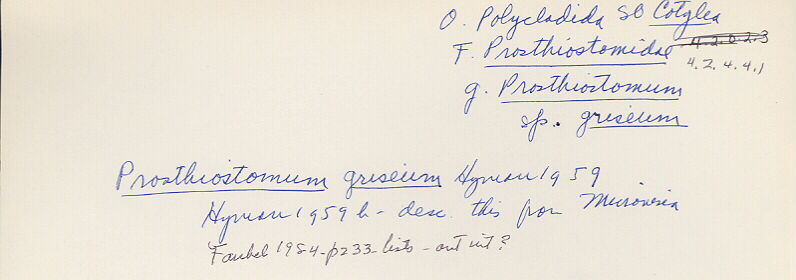 O. Polycladida SO Cotylea
F. Prosthiostomidae 4.2.0.2.3
4.2.4.4.1
g. Prosthiostomum
sp. griseum
Prosthiostomum griseum Hyman 1959
Hyman 1959b - desc. this from Micronesia
Faubel 1984 - p233 - lists - int?